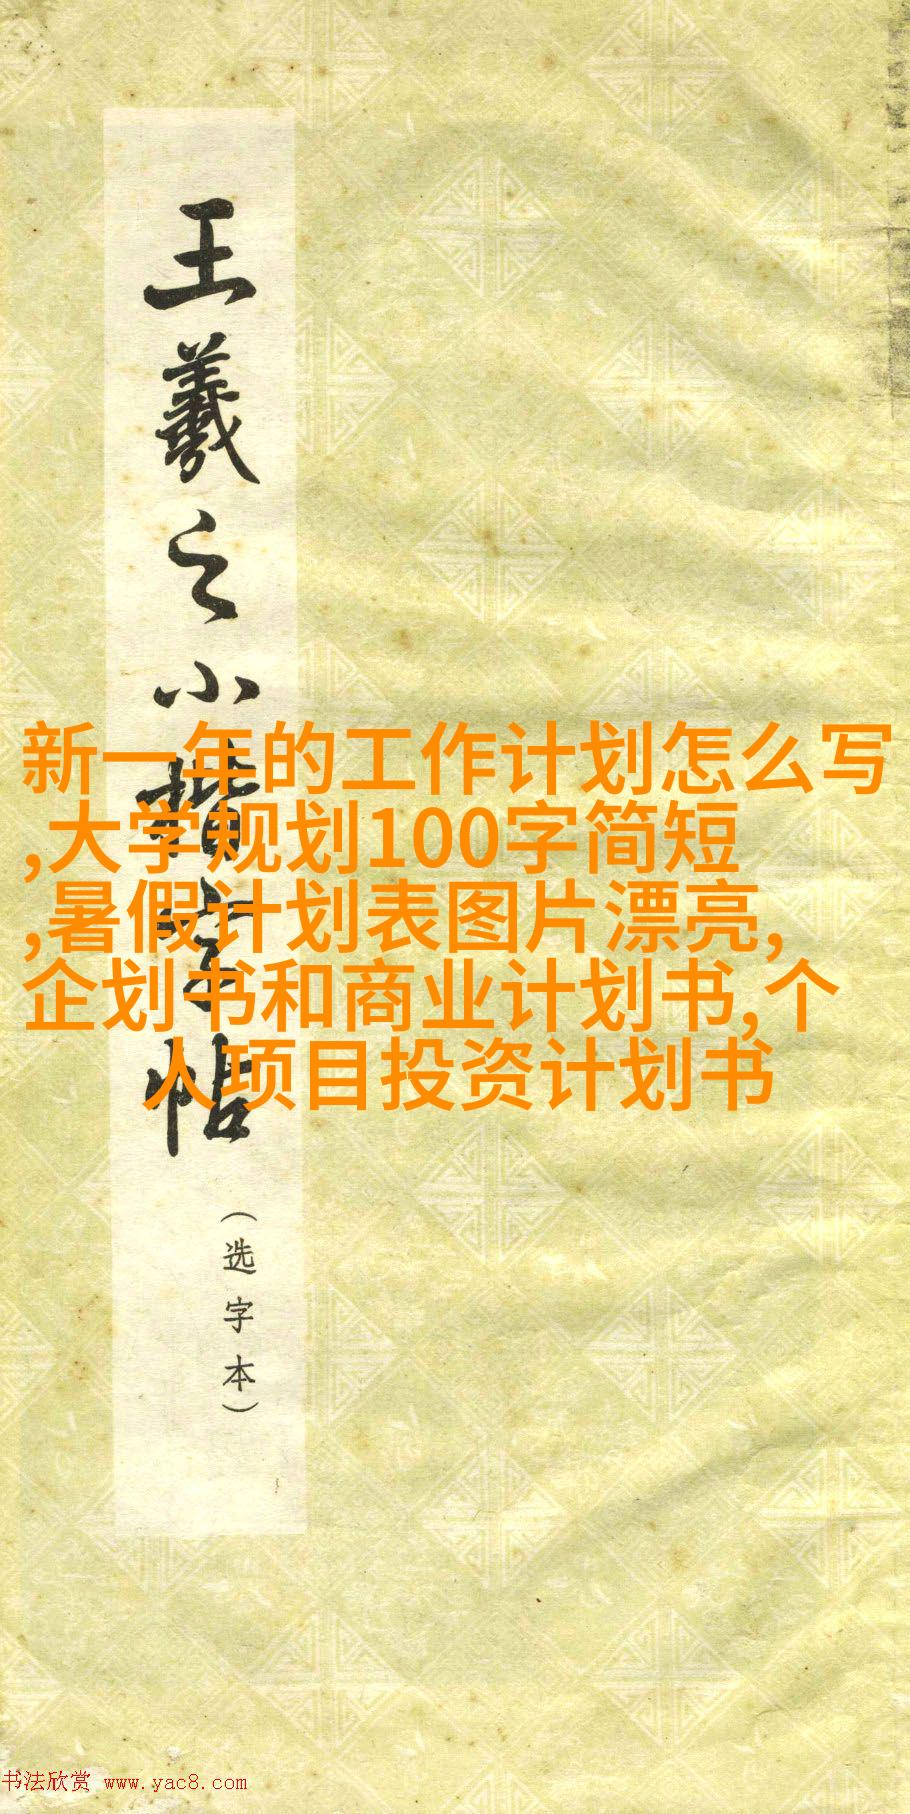 王羲之小楷字帖
（选字本）
新一年的工作计划怎么写
,大学规划100字简短
,暑假计划表图片漂亮,
企划书和商业计划书,个
人项目投资计划书
书法欣赏 www.yac8.com